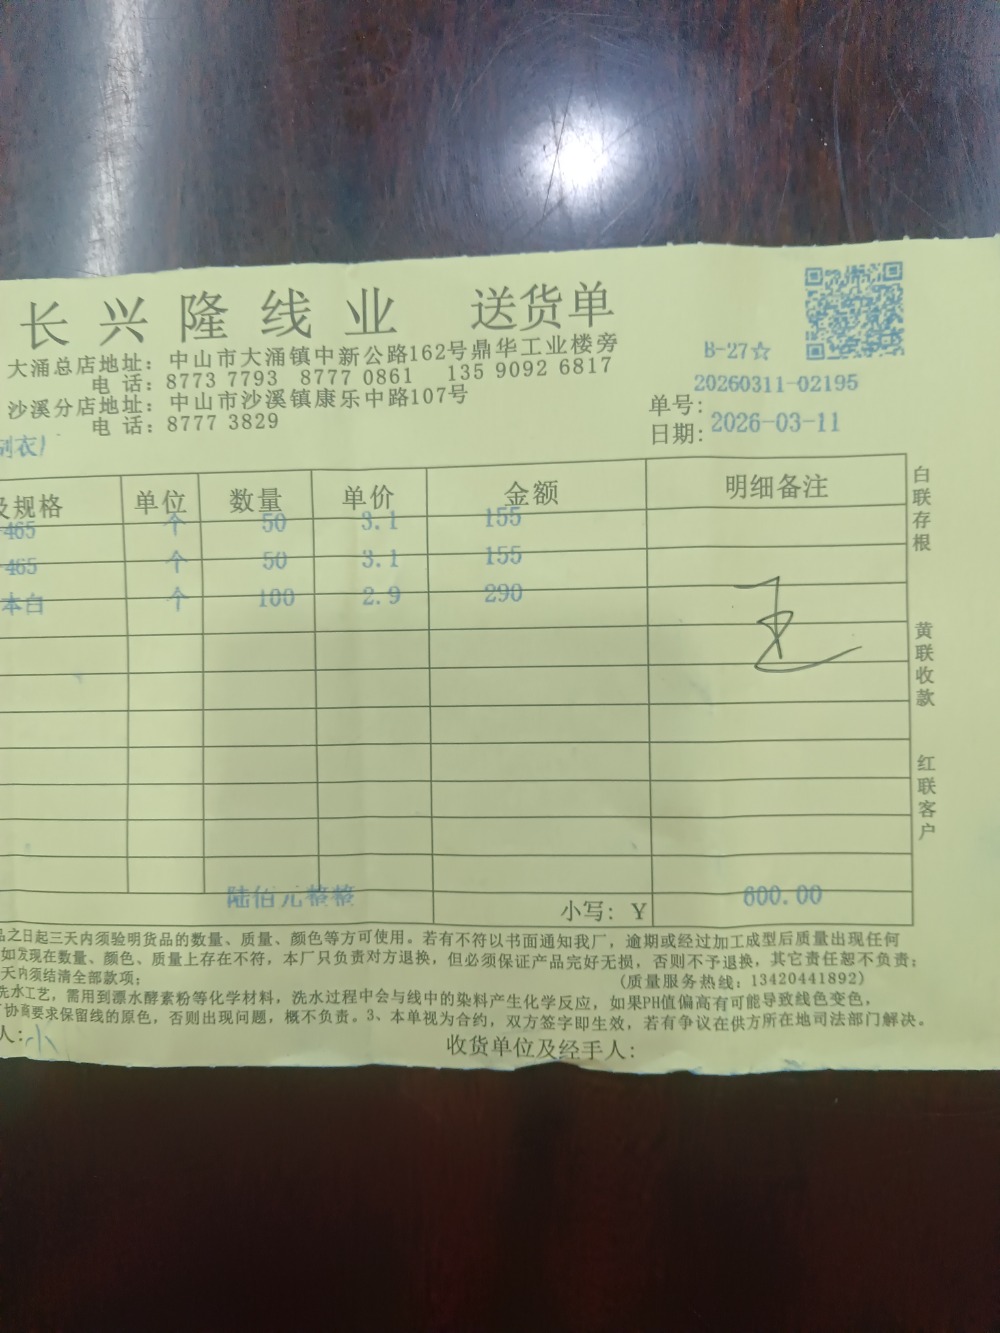 长兴隆线业 送货单
大涌总店地址：中山市大涌镇中新公路162号鼎华工业楼旁
电 话：8773 7793 8777 0861 135 9092 6817
沙溪分店地址：中山市沙溪镇康乐中路107号
电 话：8777 3829
B-27☆
单号：20260311-02195
日期：2026-03-11
制衣厂
及规格 单位 数量 单价 金额 明细备注
-465 个 50 3.1 155
-465 个 50 3.1 155
本白 个 100 2.9 290
陆佰元整整 小写：￥ 600.00
白联存根
黄联收款
红联客户
品之日起三天内须验明货品的数量、质量、颜色等方可使用。若有不符以书面通知我厂，逾期或经过加工成型后质量出现任何
如发现在数量、颜色、质量上存在不符，本厂只负责对方退换，但必须保证产品完好无损，否则不予退换，其它责任恕不负责；
天内须结清全部款项； (质量服务热线：13420441892)
洗水工艺，需用到漂水酵素粉等化学材料，洗水过程中会与线中的染料产生化学反应，如果PH值偏高有可能导致线色变色，
协商要求保留线的原色，否则出现问题，概不负责。3、本单视为合约，双方签字即生效，若有争议在供方所在地司法部门解决。
人：小
收货单位及经手人：